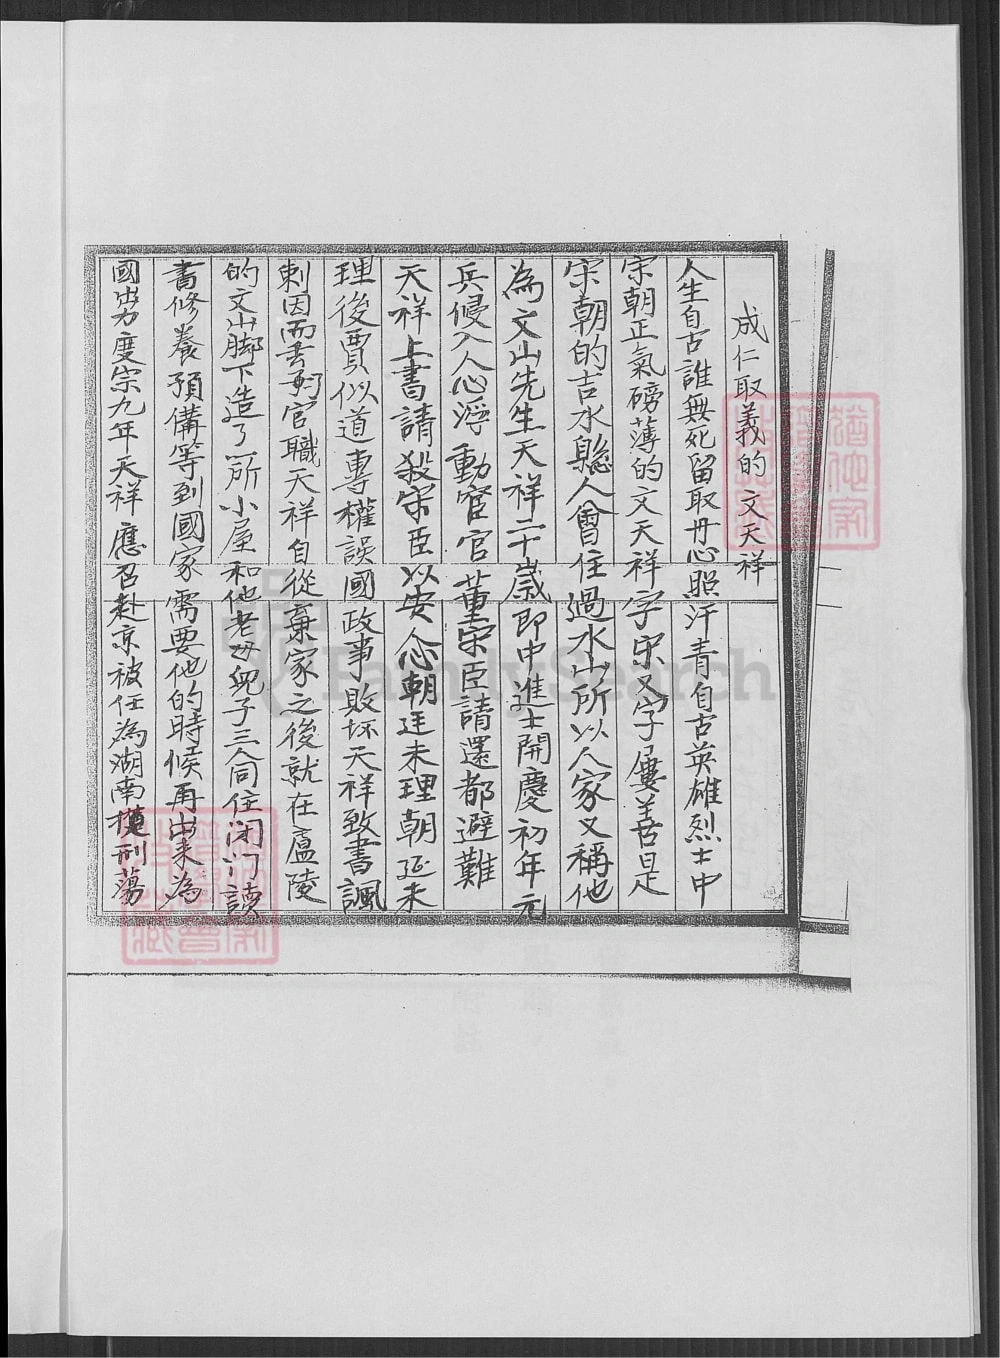 成仁取義的文天祥
人生自古誰無死留取丹心照汗青自古英雄烈士中
宋朝正氣磅薄的文天祥字宋又字屢善是
宋朝的吉水縣人曾住過水山所以人家又稱他
為文山先生天祥二十歲即中進士開慶初年元
兵侵入人心浮動宦官董宋臣請還都避難
天祥上書請殺宋臣以安人心朝廷未理朝廷未
理後賈似道專權誤國政事敗坏天祥致書諷
刺因而丟了官職天祥自從棄家之後就在廬陵
的文山脚下造了一所小屋和他老母兒子三人同住闭门讀
書修養預備等到國家需要他的時候再出来為
國労度宗九年天祥應召赴京被任為湖南提刑蕩
FamilySearch